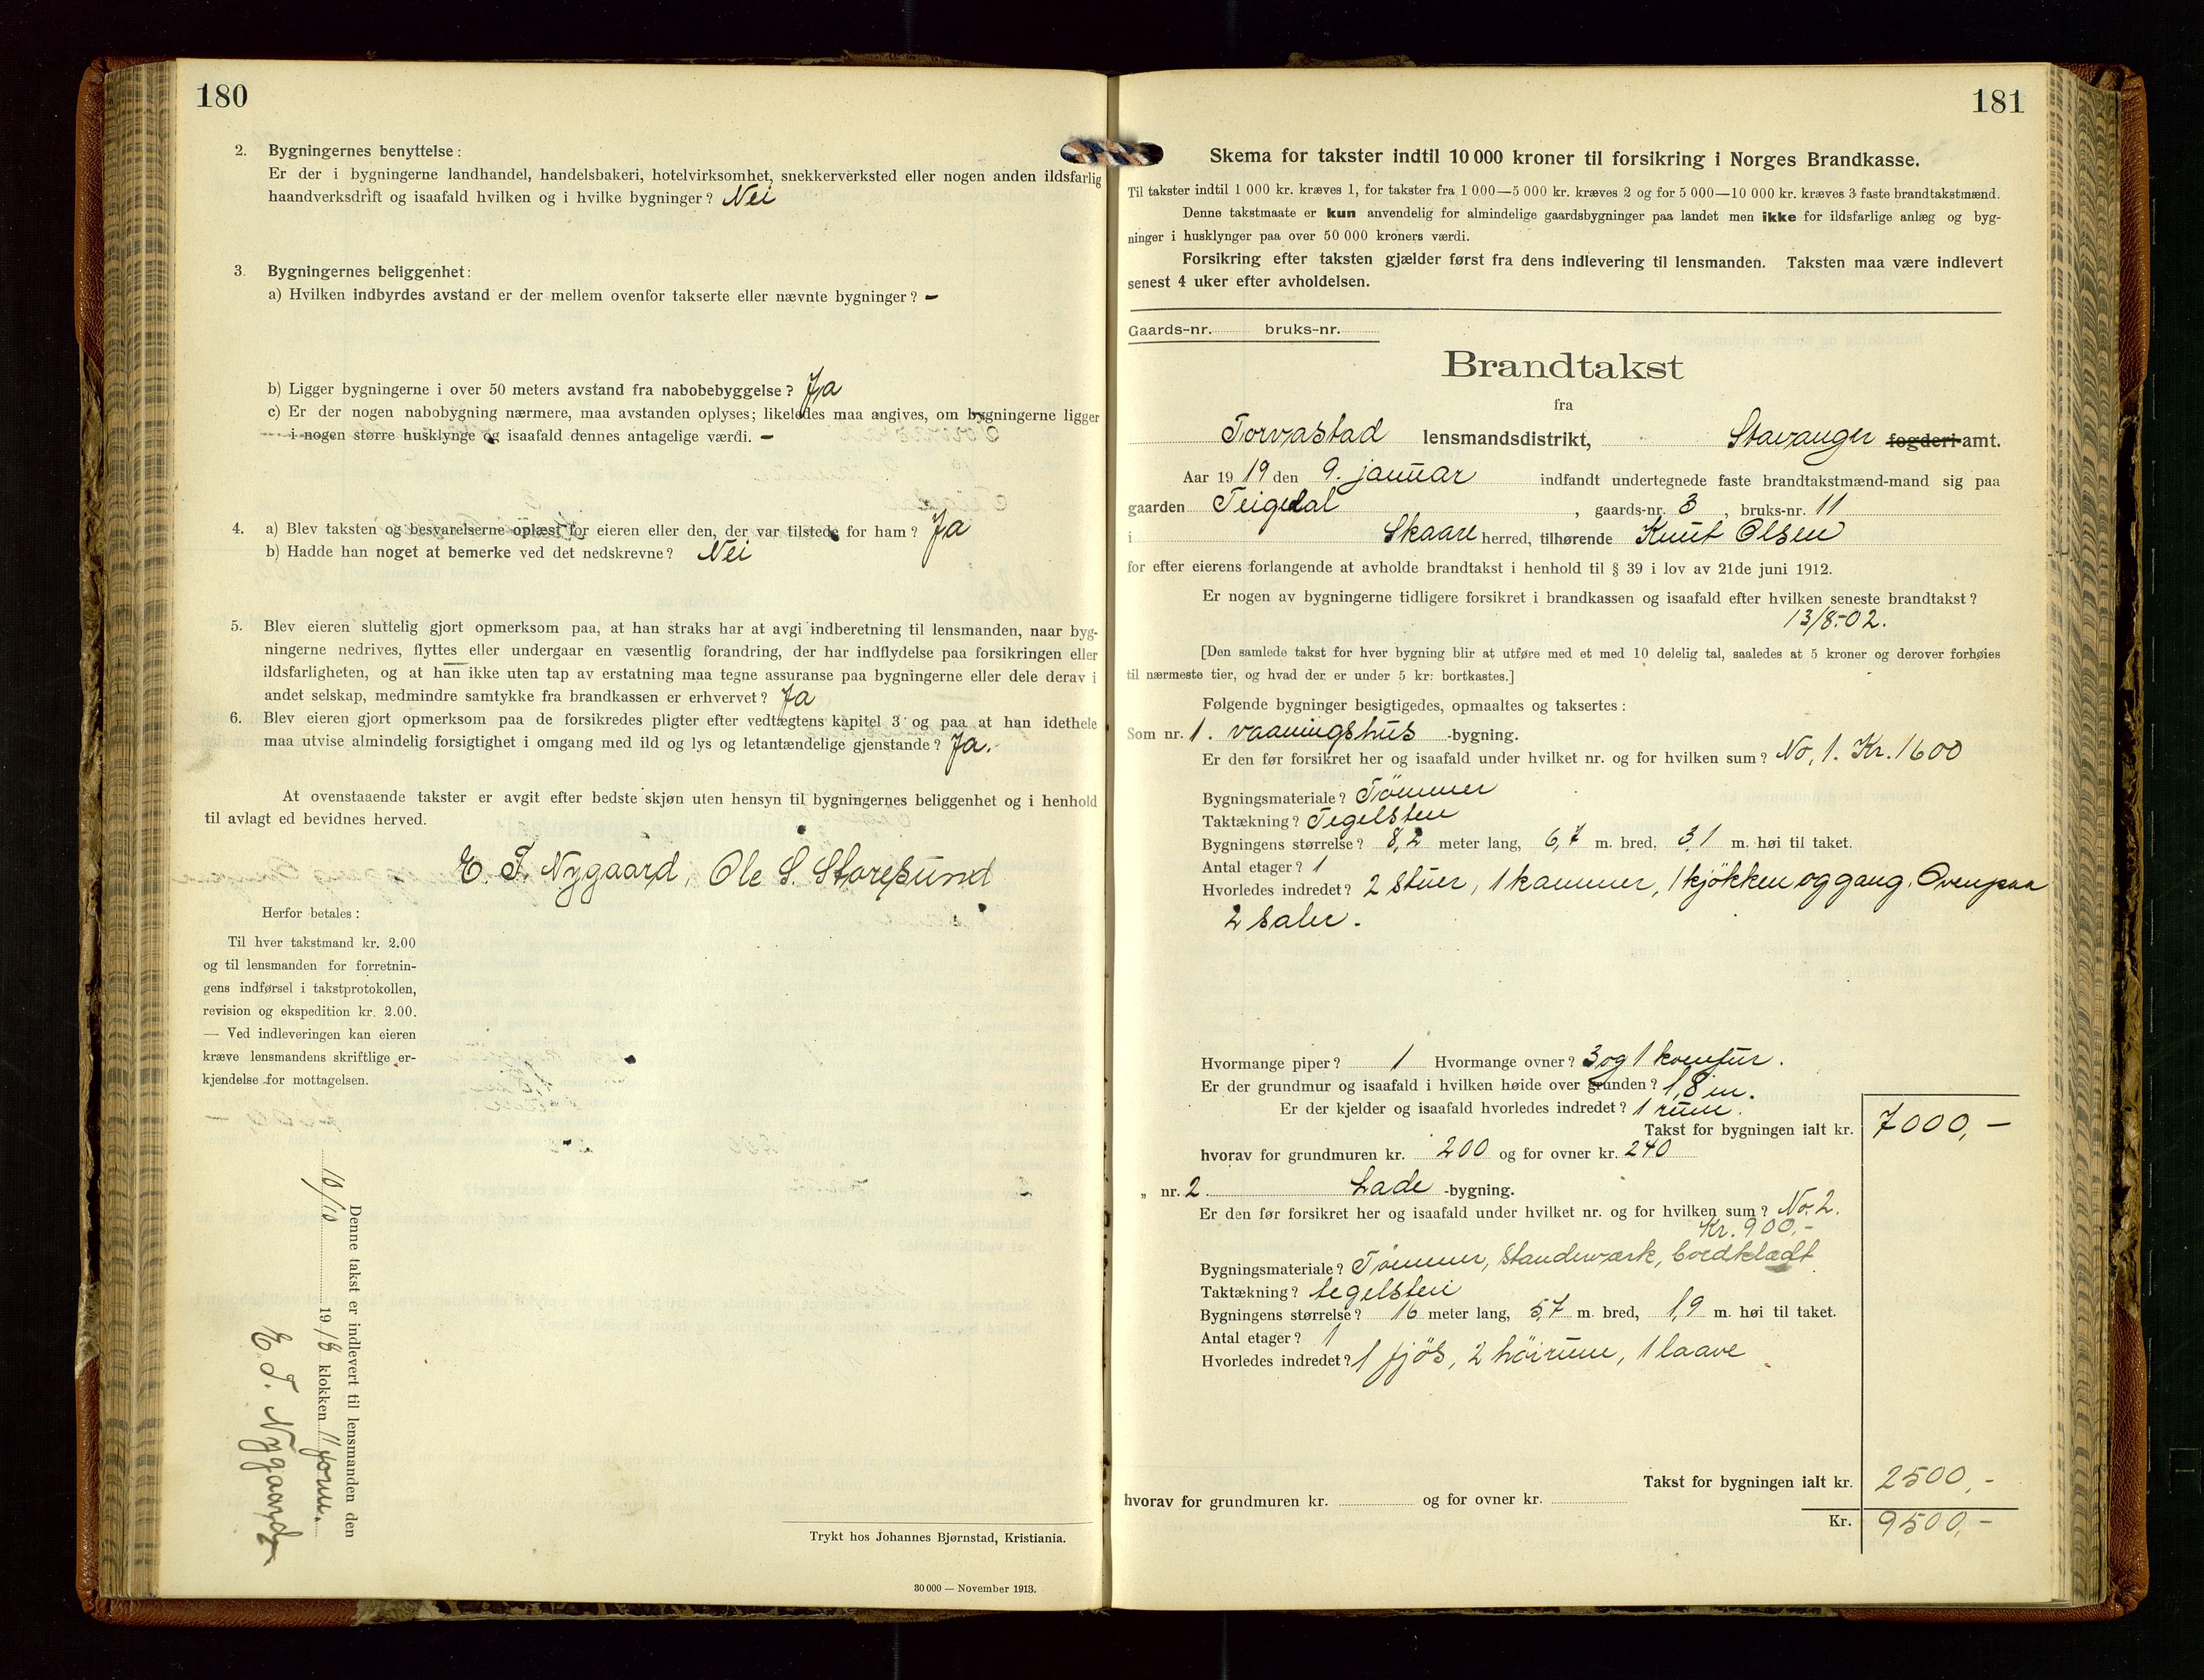 180
2. Bygningernes benyttelse:
Er der i bygningerne landhandel, handelsbakeri, hotelvirksomhet, snekkerverksted eller nogen anden ildsfarlig
haandverksdrift og isaafald hvilken og i hvilke bygninger? Nei
3. Bygningernes beliggenhet:
a) Hvilken indbyrdes avstand er der mellem ovenfor takserte eller nævnte bygninger? –
b) Ligger bygningerne i over 50 meters avstand fra nabobebyggelse? Ja
c) Er der nogen nabobygning nærmere, maa avstanden oplyses; likeledes maa angives, om bygningerne ligger
i nogen større husklynge og isaafald dennes antagelige værdi. –
4. a) Blev taksten og besvarelserne oplæst for eieren eller den, der var tilstede for ham? Ja
b) Hadde han noget at bemerke ved det nedskrevne? Nei
5. Blev eieren sluttelig gjort opmerksom paa, at han straks har at avgi indberetning til lensmanden, naar byg-
ningerne nedrives, flyttes eller undergaar en væsentlig forandring, der har indflydelse paa forsikringen eller
ildsfarligheten, og at han ikke uten tap av erstatning maa tegne assuranse paa bygningerne eller dele derav i
andet selskap, medmindre samtykke fra brandkassen er erhvervet? Ja
6. Blev eieren gjort opmerksom paa de forsikredes pligter efter vedtægtens kapitel 3 og paa at han idethele
maa utvise almindelig forsigtighet i omgang med ild og lys og letantændelige gjenstande? Ja.
At ovenstaaende takster er avgit efter bedste skjøn uten hensyn til bygningernes beliggenhet og i henhold
til avlagt ed bevidnes herved.
E. T. Nygaard, Ole S. Storesund
Herfor betales:
Til hver takstmand kr. 2.00
og til lensmanden for forretnin-
gens indførsel i takstprotokollen,
revision og ekspedition kr. 2.00.
— Ved indleveringen kan eieren
kræve lensmandens skriftlige er-
kjendelse for mottagelsen.
Denne takst er indlevert til lensmanden den
10/10 1918 klokken 11 form.
E. T. Nygaard
Trykt hos Johannes Bjørnstad, Kristiania.
30 000 — November 1913.
181
Skema for takster indtil 10 000 kroner til forsikring i Norges Brandkasse.
Til takster indtil 1 000 kr. kræves 1, for takster fra 1 000—5 000 kr. kræves 2 og for 5 000—10 000 kr. kræves 3 faste brandtakstmænd.
Denne takstmaate er kun anvendelig for almindelige gaardsbygninger paa landet men ikke for ildsfarlige anlæg og byg-
ninger i husklynger paa over 50 000 kroners værdi.
Forsikring efter taksten gjælder først fra dens indlevering til lensmanden. Taksten maa være indlevert
senest 4 uker efter avholdelsen.
Gaards-nr. bruks-nr.
Brandtakst
fra
Torvastad lensmandsdistrikt, Stavanger fogderi amt.
Aar 1919 den 9. januar indfandt undertegnede faste brandtakstmænd-mand sig paa
gaarden Teigedal, gaards-nr. 3, bruks-nr. 11
i Skaare herred, tilhørende Knut Olsen
for efter eierens forlangende at avholde brandtakst i henhold til § 39 i lov av 21de juni 1912.
Er nogen av bygningerne tidligere forsikret i brandkassen og isaafald efter hvilken seneste brandtakst?
13/8-02.
[Den samlede takst for hver bygning blir at utføre med et med 10 delelig tal, saaledes at 5 kroner og derover forhøies
til nærmeste tier, og hvad der er under 5 kr: bortkastes.]
Følgende bygninger besigtigedes, opmaaltes og taksertes:
Som nr. 1. vaaningshus -bygning.
Er den før forsikret her og isaafald under hvilket nr. og for hvilken sum? No. 1. Kr. 1600
Bygningsmateriale? Tömmer
Taktækning? Tegelsten
Bygningens størrelse? 8,2 meter lang, 6,7 m. bred, 3,1 m. høi til taket.
Antal etager? 1
Hvorledes indredet? 2 stuer, 1 kammer, 1 kjökken og gang. Ovenpaa
2 saler.
Hvormange piper? 1 Hvormange ovner? 3 og 1 komfur.
Er der grundmur og isaafald i hvilken høide over grunden? 1,8 m.
Er der kjelder og isaafald hvorledes indredet? 1 rum.
Takst for bygningen ialt kr. 7000,—
hvorav for grundmuren kr. 200 og for ovner kr. 240
„ nr. 2 Lade -bygning.
Er den før forsikret her og isaafald under hvilket nr. og for hvilken sum? No. 2.
Kr. 900,-
Bygningsmateriale? Tömmer, Standerværk, bordklædt
Taktækning? tegelsten
Bygningens størrelse? 16 meter lang, 5,7 m. bred, 1,9 m. høi til taket.
Antal etager? 1
Hvorledes indredet? 1 fjös, 2 höirum, 1 laave
Takst for bygningen ialt kr. 2500,-
hvorav for grundmuren kr. og for ovner kr.
Kr. 9500,-